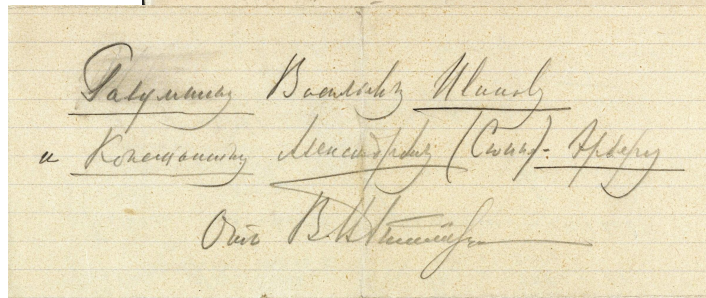 Разумнику Васильевичу Иванову
и Константину Александровичу (Сюннер)-Эрбергу
Отъ